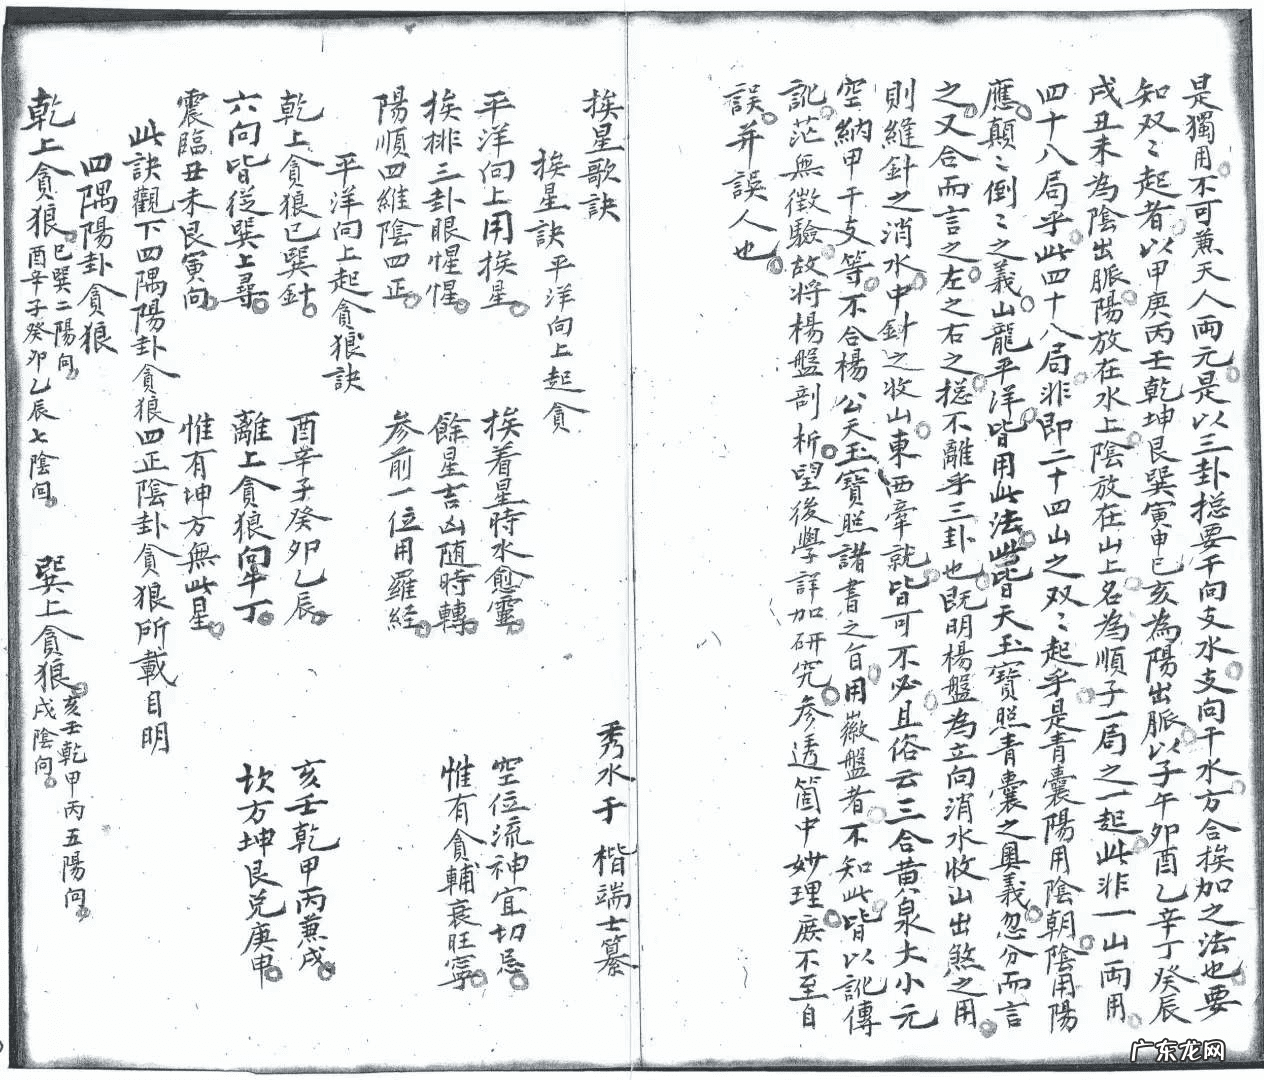 是獨用不可兼天人兩元是以三卦捴要干向支水支向干水方合挨加之法也要
知双〻起者以甲庚丙壬乾坤艮巽寅申巳亥為陽出脈以子午卯酉乙辛丁癸辰
戌丑未為陰出脈陽放在水上陰放在山上名為順子一局之一起此非一山兩用
四十八局乎此四十八局非即二十四山之双〻起乎是青囊陽用陰朝陰用陽
應顛〻倒〻之義山龍平洋皆用此法此皆天玉寶照青囊之奧義忽分而言
之又合而言之左之右之捴不離乎三卦也既明楊盤為立向消水收山出煞之用
則縫針之消水中針之收山東西牽就皆可不必且俗云三合黃泉大小元
空納甲干支等不合楊公天玉寶照諸書之旨用徽盤者不知此皆以訛傳
訛茫無徵驗故將楊盤剖析望後學詳加研究參透箇中妙理庻不至自
誤并誤人也
挨星歌訣 秀水于楷端士纂
挨星訣平洋向上起貪
平洋向上用挨星 挨着星時水愈靈 空位流神宜切忌
挨排三卦眼惺惺 餘星吉凶随時轉 惟有貪輔衰旺寧
陽順四維陰四正 参前一位用羅経
平洋向上起貪狼訣
乾上貪狼巳巽針 酉辛子癸卯乙辰 亥壬乾甲丙兼戌
六向皆從巽上尋 離上貪狼向午丁 坎方坤艮兌庚申
震臨丑未艮寅向 惟有坤方無此星
此訣觀下四隅陽卦貪狼四正陰卦貪狼所載自明
四隅陽卦貪狼
乾上貪狼巳巽二陽向酉辛子癸卯乙辰七陰向 巽上貪狼亥壬乾甲丙五陽向戌陰向
广东龙网